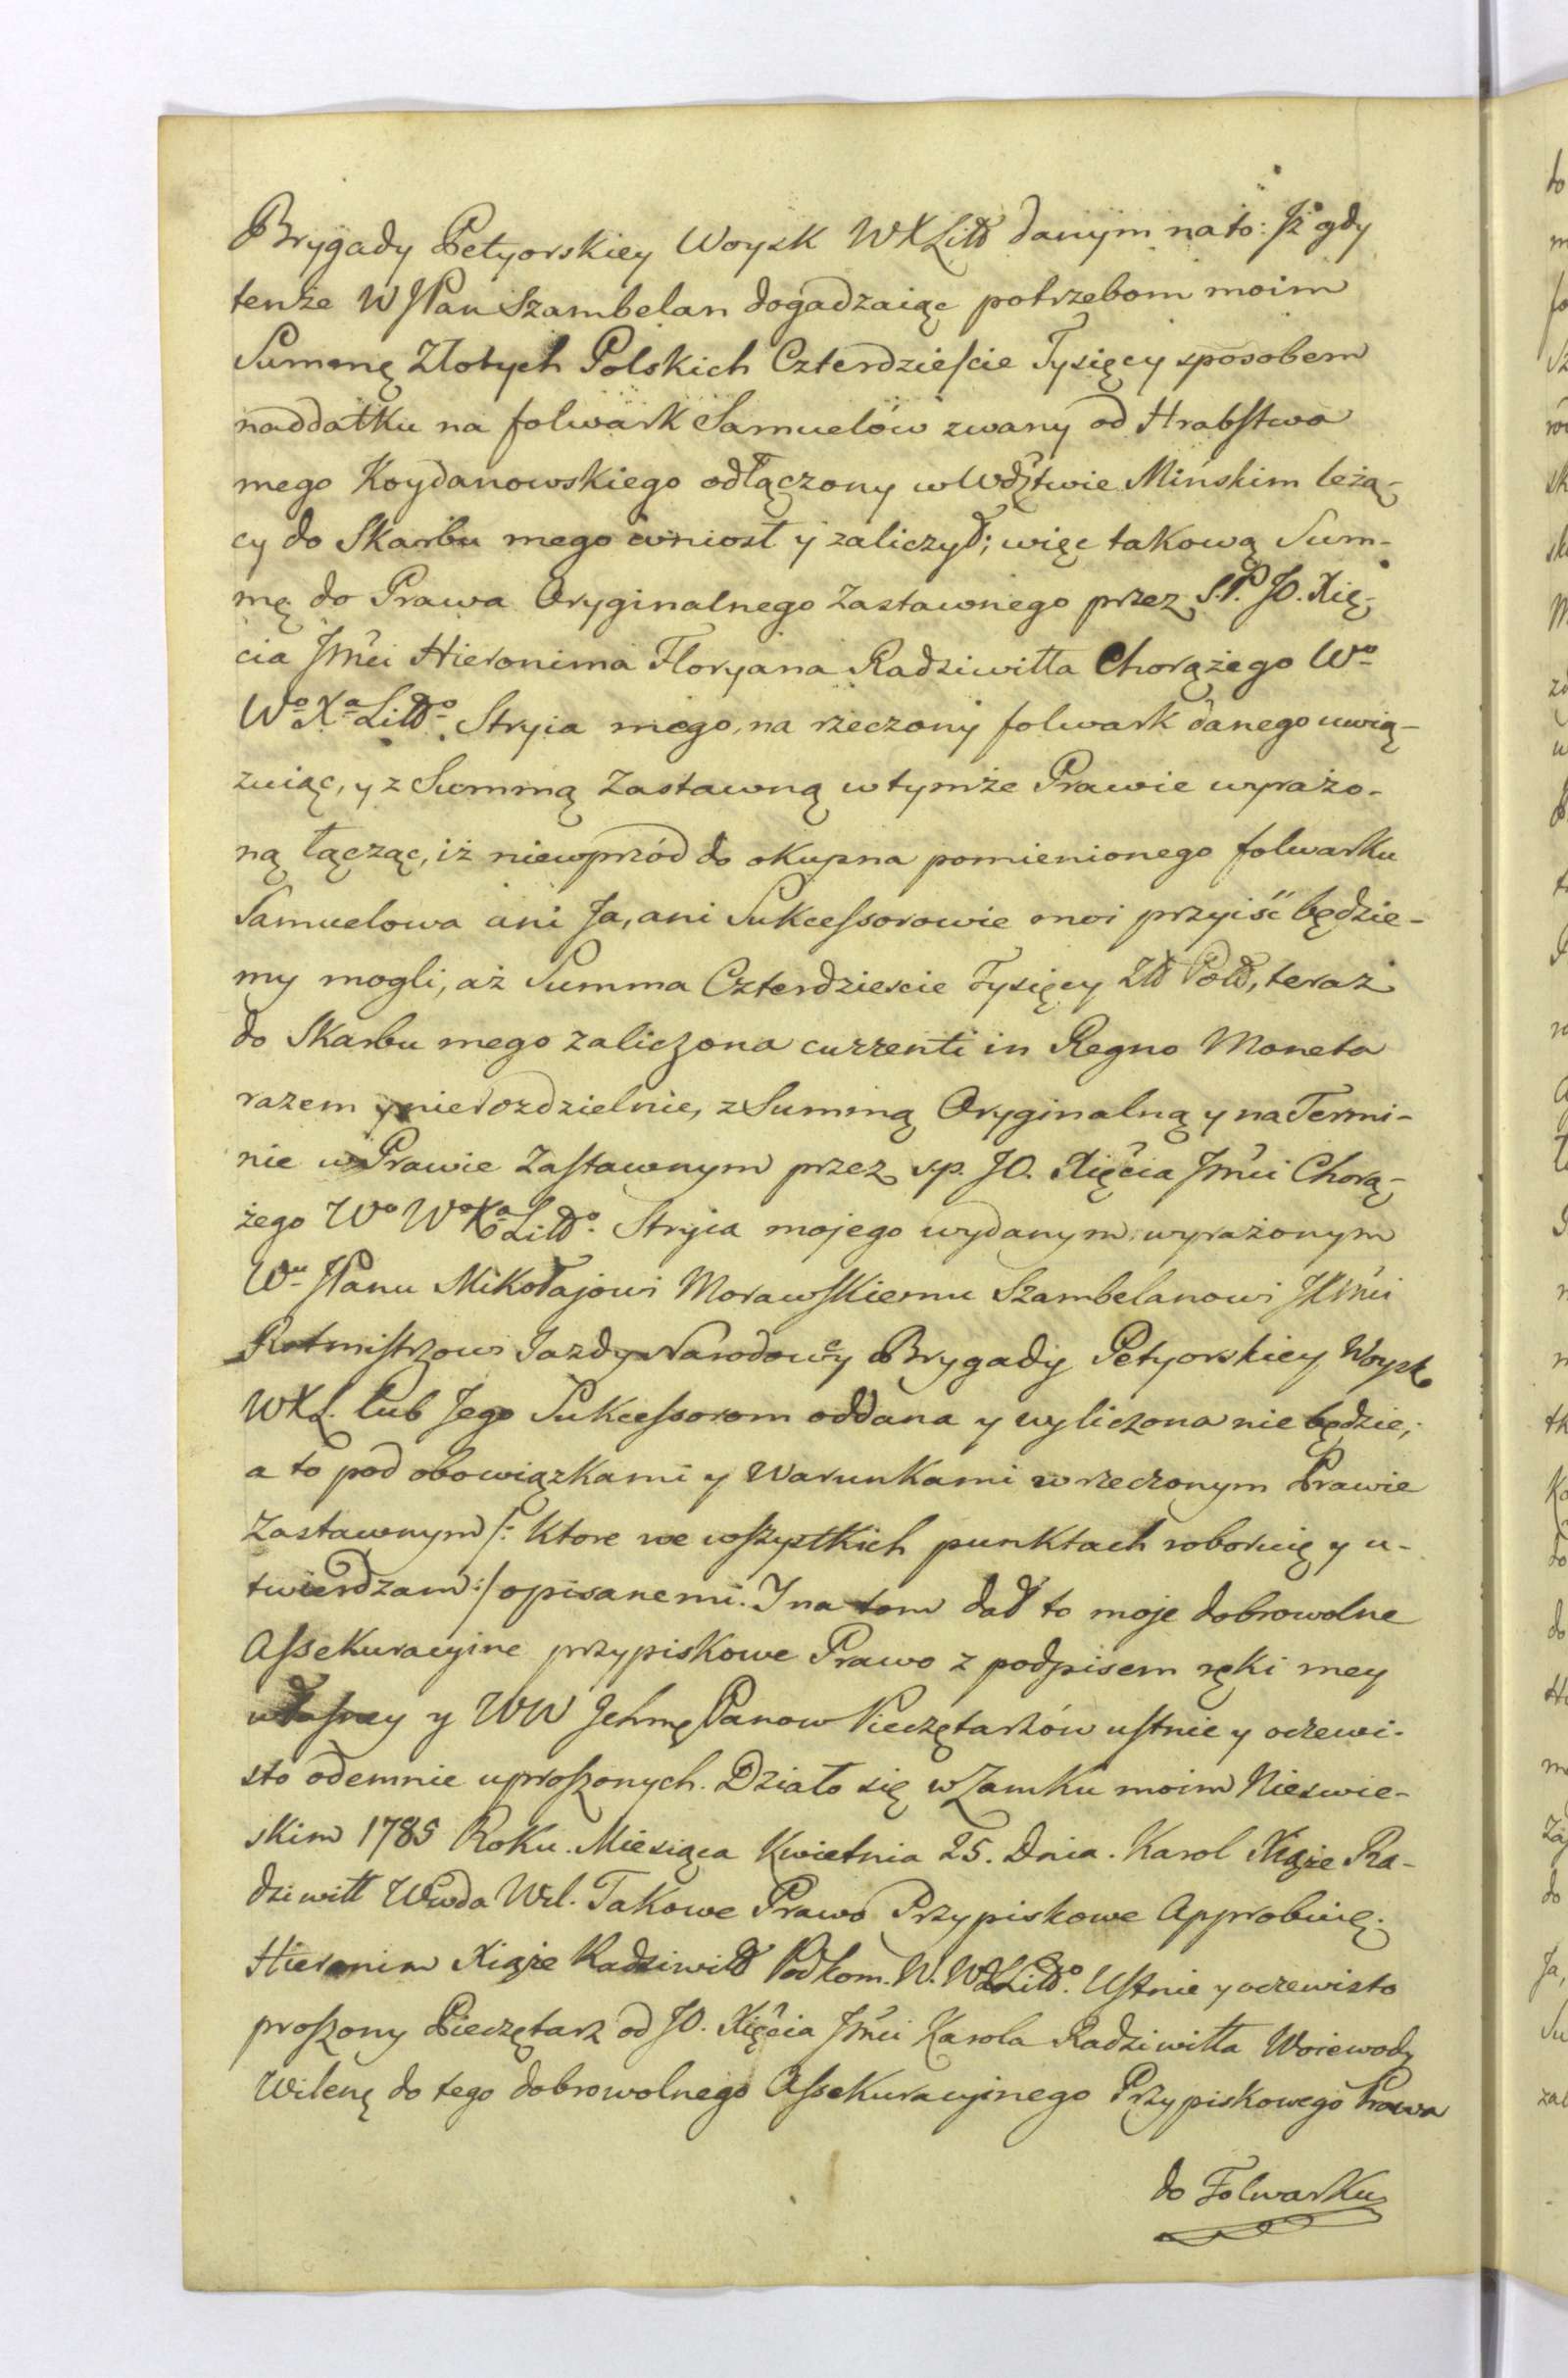 Brygady Petyorskiey Woysk WXLitt danym na to: Jż gdy
tenże W JPan Szambelan dogadzaiąc potrzebom moim
Summę Złotych Polskich Czterdzieście Tysięcy sposobem
naddatku na folwark Samuelów zwany od Hrabstwa
mego Koydanowskiego odłączony w Wdztwie Mińskim leżą-
cy do Skarbu mego wniosł y zaliczył; więc takową Sum-
mę do Prawa Oryginalnego Zastawnego przez S.P. JO. Xię-
cia Jmci Hieronima Floryana Radziwiłła Chorążego Wo
Wo Xa Litto. Stryia mego, na rzeczony folwark danego uwią-
zuiąc, y z Summą Zastawną w tymże Prawie wyrażo-
ną łącząc, iż niewprzód do okupna pomienionego folwarku
Samuelowa ani Ja, ani Sukcessorowie moi przyiść będzie-
my mogli, aż Summa Czterdzieście Tysięcy Złł Poll, teraz
do Skarbu mego zaliczona currenti in Regno Moneta
razem y nierozdzielnie, z Summą Oryginalną y na Termi-
nie w Prawie Zastawnym przez s.p. JO. Xięcia Jmci Chorą-
żego Wo Wo Xa Litto. Stryia mojego wydanym wyrażonym
Wu JPanu Mikołajowi Morawskiemu Szambelanowi JKMci
Rotmistrzowi Jazdy Narodowey Brygady Petyorskiey Woysk
WXL. lub Jego Sukcessorom oddana y wyliczona nie będzie,
a to pod obowiązkami y Warunkami w rzeczonym Prawie
Zastawnym /: Ktore we wszystkich punktach roboruię y u-
twierdzam :/ opisanemi. J na tom dał to moje dobrowolne
Assekuracyine przypiskowe Prawo z podpisem ręki mey
własney y WW Jchmę Panow Pieczętarzów ustnie y oczewi-
sto odemnie uproszonych. Działo się w Zamku moim Nieswie-
skim 1785 Roku. Miesiąca Kwietnia 25. Dnia. Karol Xiąże Ra-
dziwiłł Wwda Wil. Takowe Prawo Przypiskowe Approbuię.
Hieronim Xiąże Radziwiłł Podkom. W. WXLitto. Ustnie y oczewisto
proszony Pieczętarz od JO. Xięcia Jmci Karola Radziwiłła Woiewody
Wileng do tego dobrowolnego Assekuracyinego Przypiskowego Prawa
do Folwarku